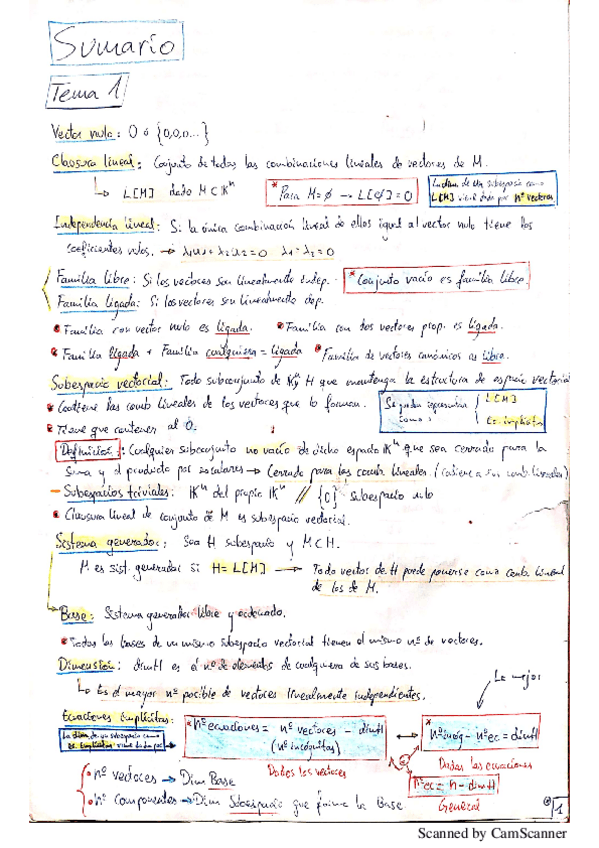 Sumario
Tema 1
Vector nulo: 0 ó {0,0,0...}
Clausura lineal: Conjunto de todas las combinaciones lineales de vectores de M.
↳ L[M] dado M⊂Kⁿ
*Para M=ø → L[ø]=0
La dim. de un subespacio como
L[M] viene dado por nº vectores
Independencia Lineal: Si la única combinación lineal de ellos igual al vector nulo tiene los
coeficientes nulos. → λ₁u₁=λ₂u₂=0 λ₁=λ₂=0
Familia libre: Si los vectores son linealmente indep.
*Conjunto vacío es familia libre.
Familia ligada: Si los vectores son linealmente dep.
*Familia con vector nulo es ligada. *Familia con dos vectores prop. es ligada.
*Familia ligada + Familia cualquiera = ligada *Familia de vectores canónicos es libre.
Subespacio vectorial: Todo subconjunto de Kⁿ, H que mantenga la estructura de espacio vectorial
*Contiene las comb lineales de los vectores que lo forman.
Se pueden representar
como:
L[M]
Ec. implícita
*Tiene que contener al 0.
Definición: Cualquier subconjunto no vacío de dicho espacio Kⁿ que sea cerrado para la
suma y el producto por escalares → Cerrado para las comb. lineales.
- Subespacios triviales: Kⁿ del propio Kⁿ // {0} subespacio nulo
*Clausura lineal de conjunto de M es subespacio vectorial.
Sistema generador: Sea H subespacio y M⊂H.
M es sist. generador si H=L[M] → Todo vector de H puede ponerse como comb. lineal
de los de M.
Base: Sistema generador libre y ordenado.
*Todas las bases de un mismo subespacio vectorial tienen el mismo nº de vectores.
Dimensión: dimH es el nº de elementos de cualquiera de sus bases.
↳ Es el mayor nº posible de vectores linealmente independientes.
La mejor
Ecuaciones Implícitas:
La dim. de un subespacio como
ec. implícitas viene dada por
*nº ecuaciones = nº vectores - dimH
(nº incógnitas)
*nºincóg - nºec = dimH
Dados los vectores
Dadas las ecuaciones
nºec = n - dimH
General
nº vectores → Dim Base
nº componentes → Dim Subespacio que forma la Base
1
Scanned by CamScanner